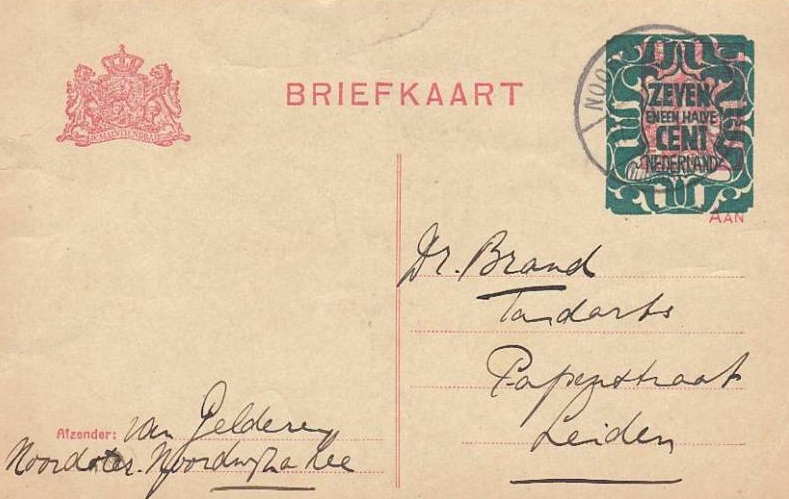 BRIEFKAART
JE MAINTIENDRAI
NOO
ZEVEN
EN EEN HALVE
CENT
NEDERLAND
AAN
Dr. Brand
Tandarts
Papenstraat
Leiden
Afzender: van Gelderen
Noordwijk a Zee